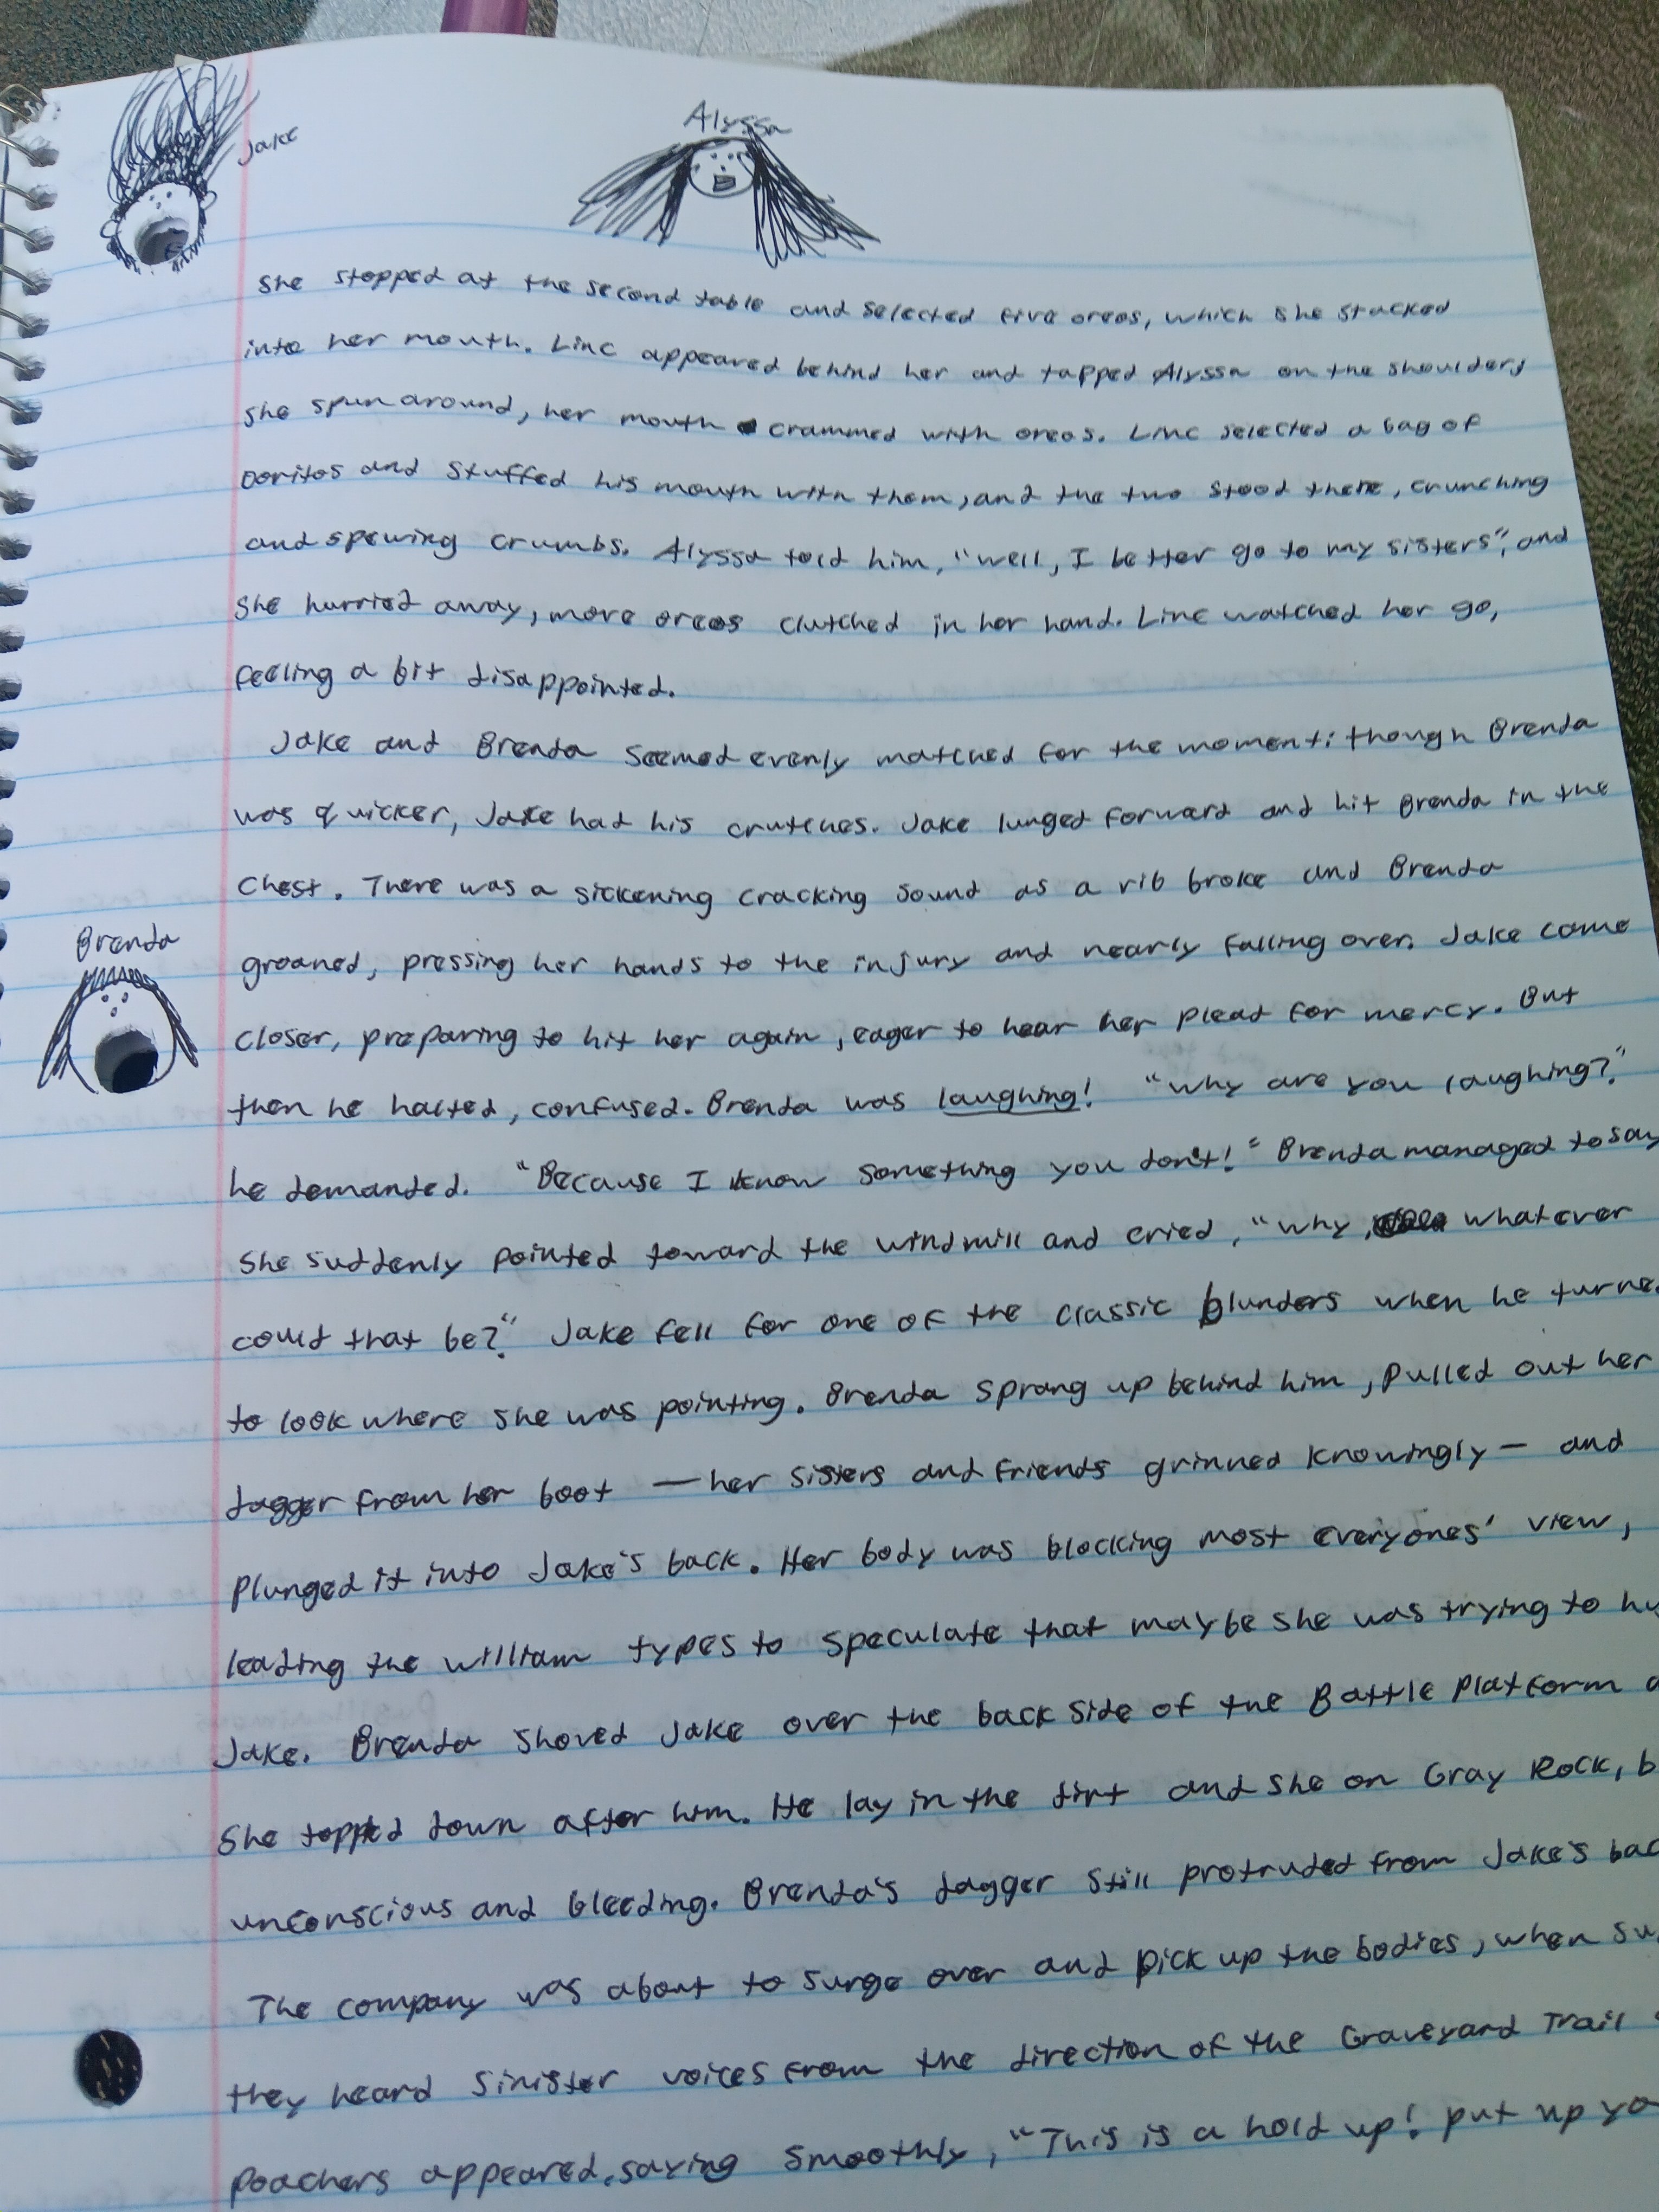 Jake
Alyssa
She stopped at the second table and selected five oreos, which she stacked
into her mouth. Linc appeared behind her and tapped Alyssa on the shoulder;
she spun around, her mouth crammed with oreos. Linc selected a bag of
Doritos and stuffed his mouth with them, and the two stood there, crunching
and spewing crumbs. Alyssa told him, "well, I better go to my sisters", and
she hurried away, more oreos clutched in her hand. Linc watched her go,
feeling a bit disappointed.
Jake and Brenda seemed evenly matched for the moment: though Brenda
was quicker, Jake had his crutches. Jake lunged forward and hit Brenda in the
chest. There was a sickening cracking sound as a rib broke and Brenda
groaned, pressing her hands to the injury and nearly falling over. Jake came
Brenda
closer, preparing to hit her again, eager to hear her plead for mercy. But
then he halted, confused. Brenda was laughing! "Why are you laughing?"
he demanded. "Because I know something you don't!" Brenda managed to say
She suddenly pointed toward the windmill and cried, "Why, whatever
could that be?" Jake fell for one of the classic blunders when he turne
to look where she was pointing. Brenda sprang up behind him, pulled out her
dagger from her boot — her sisters and friends grinned knowingly — and
plunged it into Jake's back. Her body was blocking most everyones' view,
leading the William types to speculate that maybe she was trying to hu
Jake. Brenda shoved Jake over the back side of the Battle Platform a
she toppled down after him. He lay in the dirt and she on Gray Rock, b
unconscious and bleeding. Brenda's dagger still protruded from Jake's bac
The company was about to surge over and pick up the bodies, when su
they heard sinister voices from the direction of the Graveyard Trail
poachers appeared, saying smoothly, "This is a hold up! put up yo